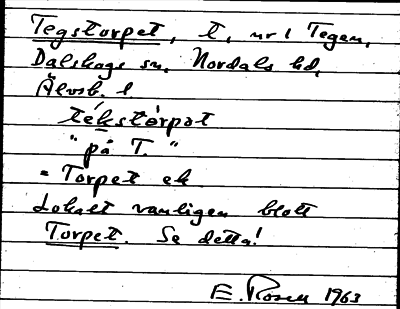 Tegstorpet, t, nr 1 Tegen,
Dalskogs sn, Nordals hd,
Älvsb. l.
tékstòrpət
"på T."
= Torpet ek
Lokalt vanligen blott
Torpet. Se detta!
E. Rosell 1963